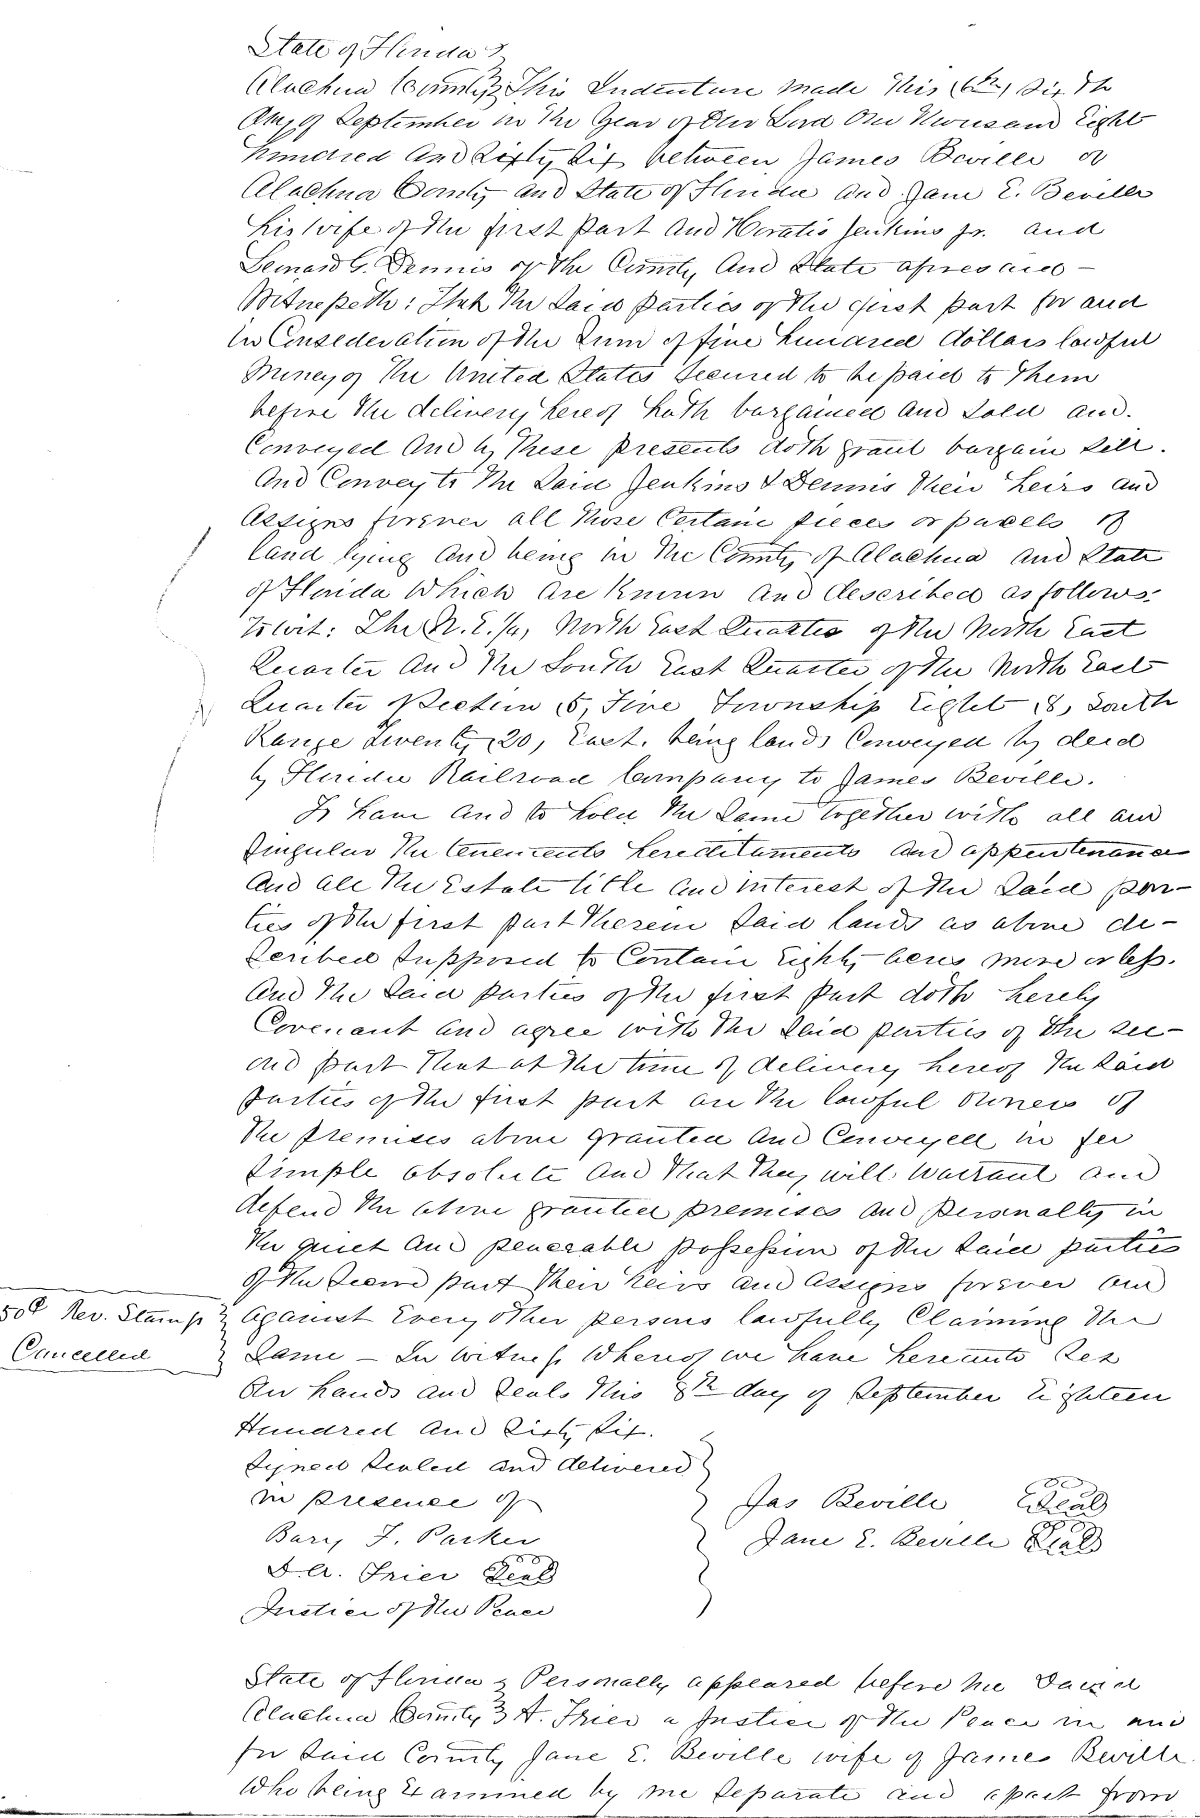 State of Florida }
Alachua County } This Indenture made this (6th) Sixth
day of September in the Year of Our Lord One thousand Eight
hundred and Sixty Six between James Beville of
Alachua County and State of Florida and Jane E. Beville
his wife of the first part and Horatio Jenkins Jr. and
Leonard G. Dennis of the County and State aforesaid –
Witnesseth: That the Said parties of the first part for and
in Consederation of the Sum of five hundred dollars lawful
money of the United States Secured to be paid to them
before the delivery hereof hath bargained and Sold and.
Conveyed and by these presents doth grant bargain Sell.
and Convey to the Said Jenkins & Dennis their heirs and
Assigns forever all those Certain pieces or pacels of
land lying and being in the County of Alachua and State
of Florida Which are Known and described as follows:
to wit: The N.E.¼, North East Quarter of the North East
Quarter and the South East Quarter of the North East
Quarter of Section (5) Five Township Eight (8) South
Range Twenty (20) East. being lands Conveyed by deed
by Florida Railroad Company to James Beville.
To have and to hold the Same together with all and
Singular the tenements hereditaments and appurtenance
and all the Estate title and interest of the Said par-
ties of the first part therein Said lands as above de-
scribed Supposed to Contain Eighty acres more or less.
And the Said parties of the first part doth hereby
Covenant and agree with the Said parties of the sec-
ond part that at the time of delivery hereof the Said
parties of the first part are the lawful owners of
the premises above granted and Conveyed in fee
Simple absolute and that they will warrant and
defend the above granted premises and personally in
the quiet and peaceable possession of the Said parties
of the Second part their heirs and assigns forever and
50¢ Rev. Stamp } against Every other persons lawfully Claiming the
Cancelled } Same – In Witness Whereof we have hereunto Set
Our hands and Seals this 8th day of September Eighteen
Hundred and Sixty Six.
Signed Sealed and delivered }
in presence of Jas Beville Seal
Barry F. Parker Jane E. Beville Seal
D. A. Frier Seal
Justice of the Peace
State of Florida } Personally appeared before me David
Alachua County } A. Frier a Justice of the Peace in and
for Said County Jane E. Beville wife of James Beville.
Who being Examined by me Separate and apart from